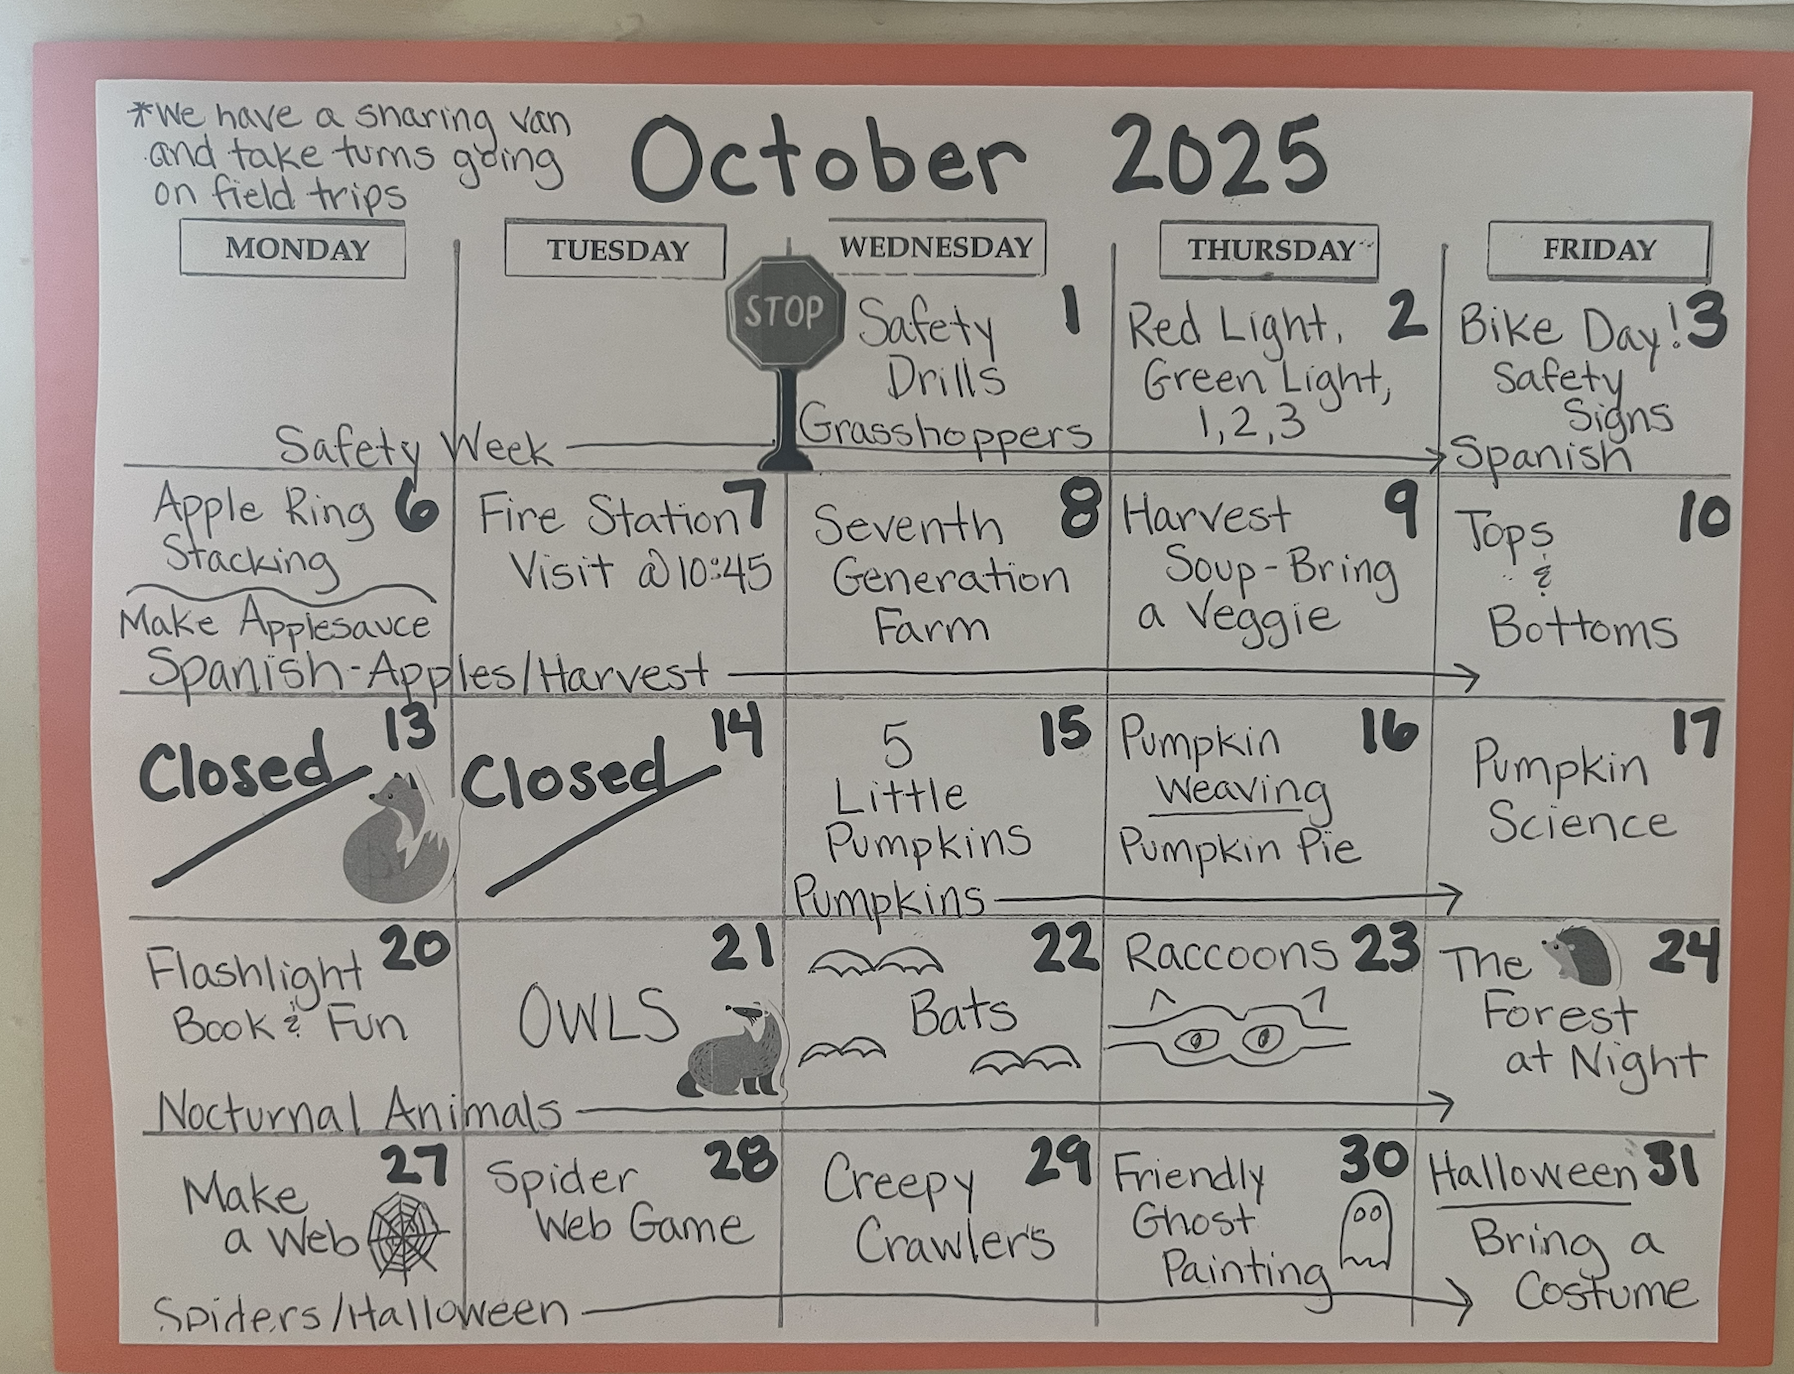 *We have a sharing van
and take turns going
on field trips
October 2025
MONDAY
TUESDAY
WEDNESDAY
THURSDAY
FRIDAY
STOP
1
Safety
Drills
Grasshoppers
2
Red Light,
Green Light,
1, 2, 3
3
Bike Day!
Safety
Signs
Spanish
Safety Week
6
Apple Ring
Stacking
Make Applesauce
7
Fire Station
Visit @ 10:45
8
Seventh
Generation
Farm
9
Harvest
Soup-Bring
a Veggie
10
Tops
&
Bottoms
Spanish-Apples/Harvest
13
Closed
14
Closed
15
5
Little
Pumpkins
16
Pumpkin
Weaving
Pumpkin Pie
17
Pumpkin
Science
Pumpkins
20
Flashlight
Book & Fun
21
OWLS
22
Bats
23
Raccoons
24
The
Forest
at Night
Nocturnal Animals
27
Make
a Web
28
Spider
Web Game
29
Creepy
Crawlers
30
Friendly
Ghost
Painting
31
Halloween
Bring a
Costume
Spiders/Halloween